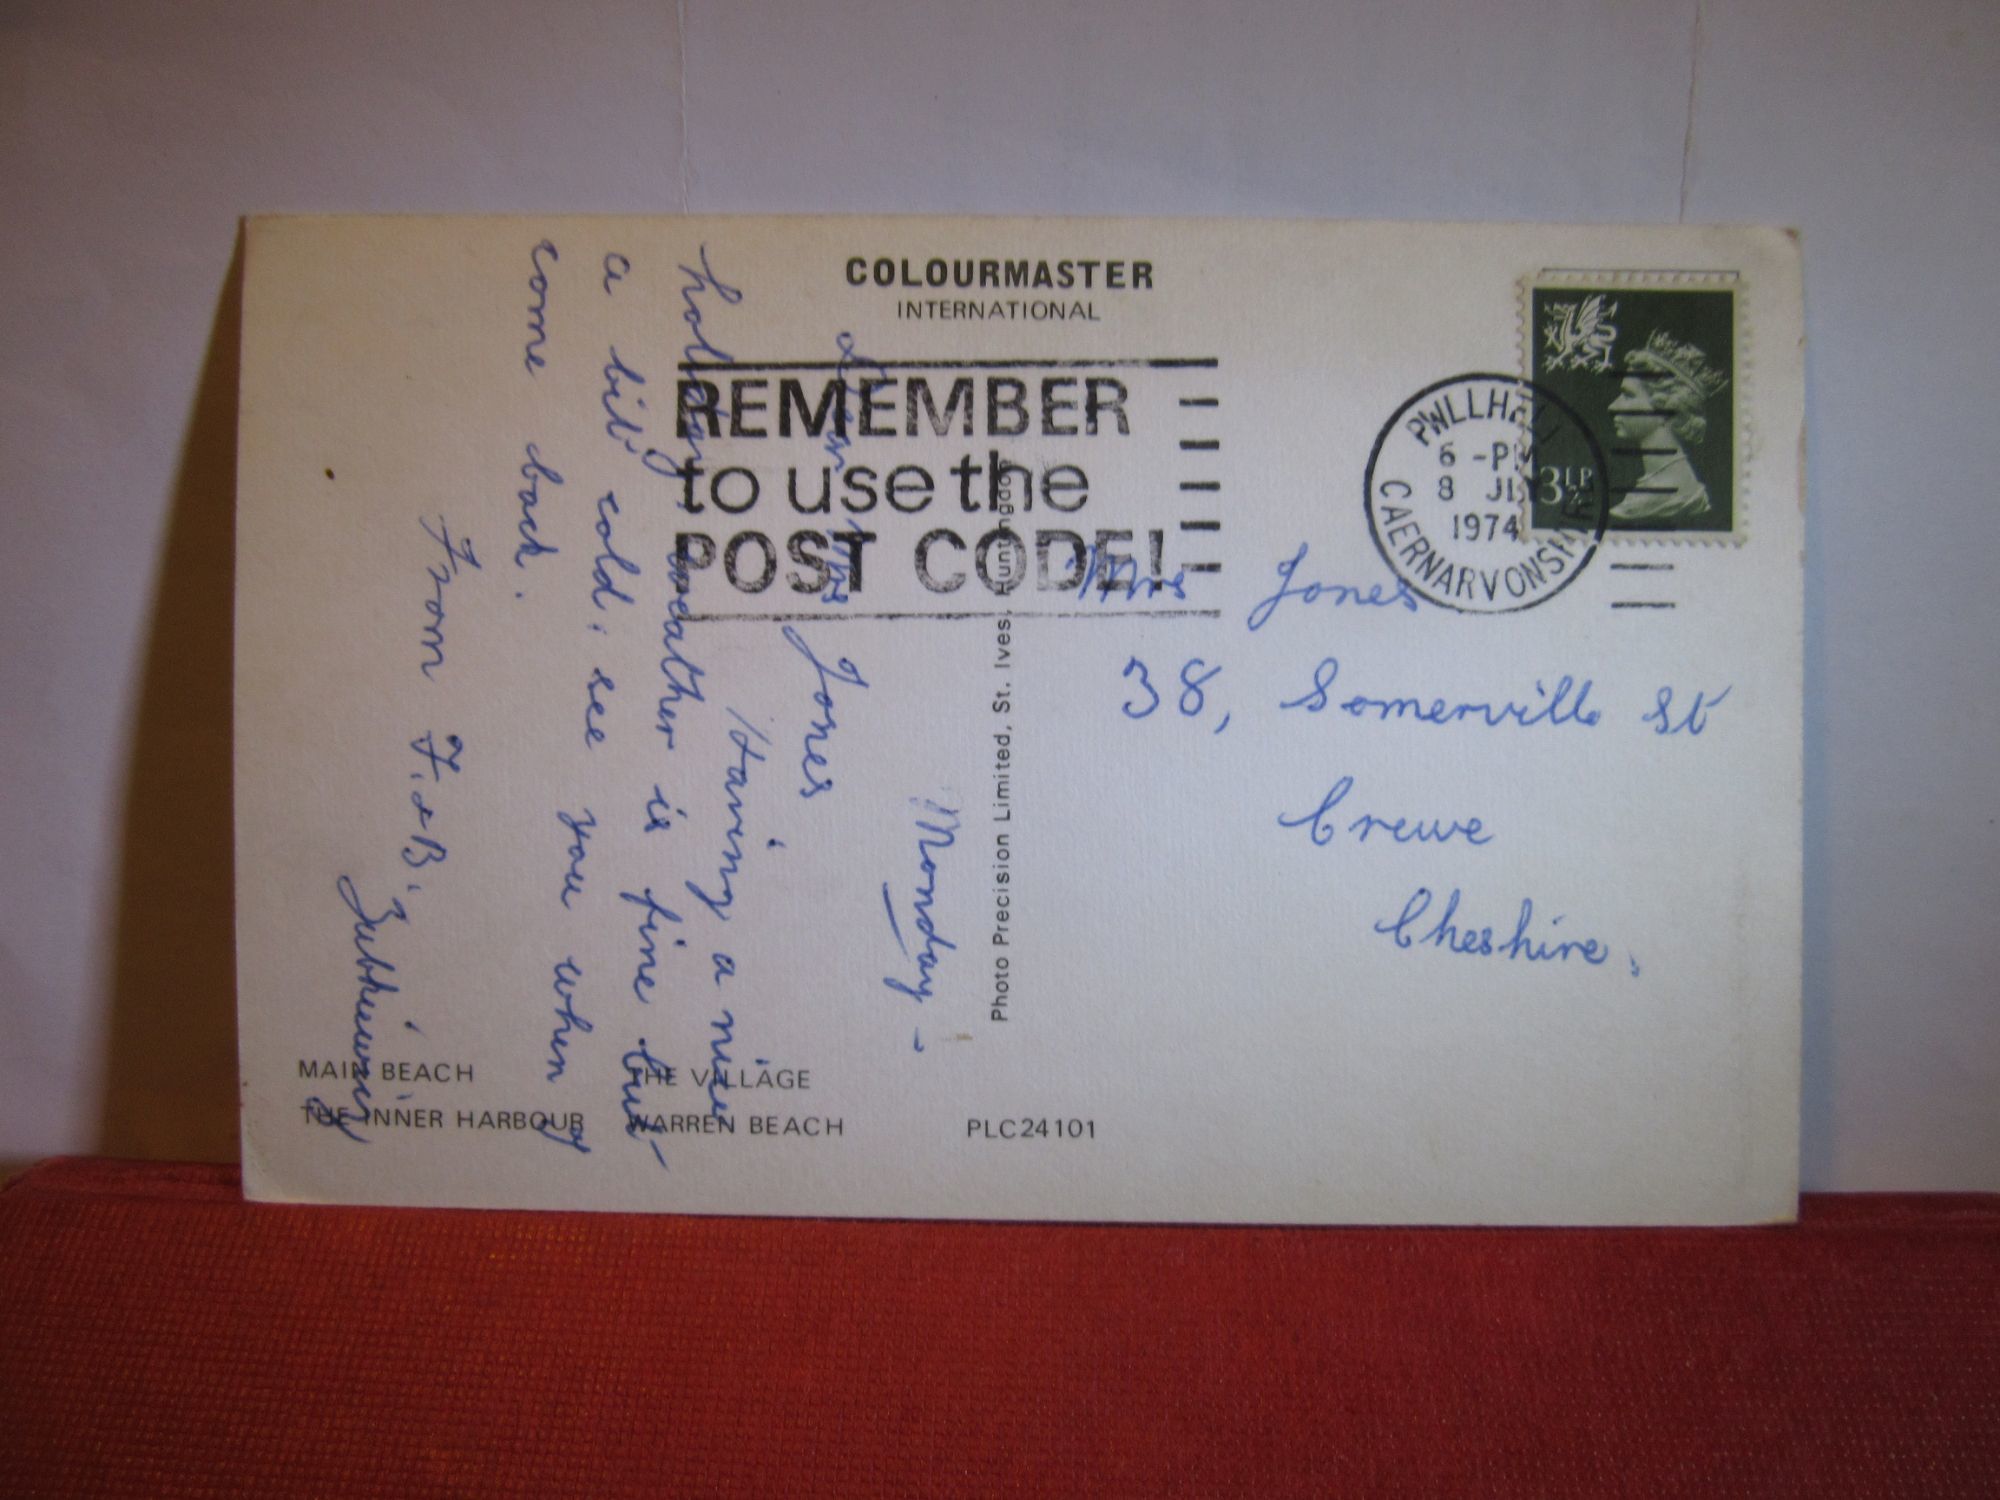 COLOURMASTER
INTERNATIONAL
REMEMBER
to use the
POST CODE!
PWLLHELI
6 - PM
8 JLY
1974
CAERNARVONSHIRE
3½P
Monday -
Dear Mrs Jones
Having a nice
holiday, weather is fine but
a bit cold, see you when
come back.
From F. & B.
Mrs Jones
38, Somerville St
Crewe
Cheshire.
Photo Precision Limited, St. Ives, Huntingdon
MAIN BEACH THE VILLAGE
THE INNER HARBOUR WARREN BEACH PLC24101